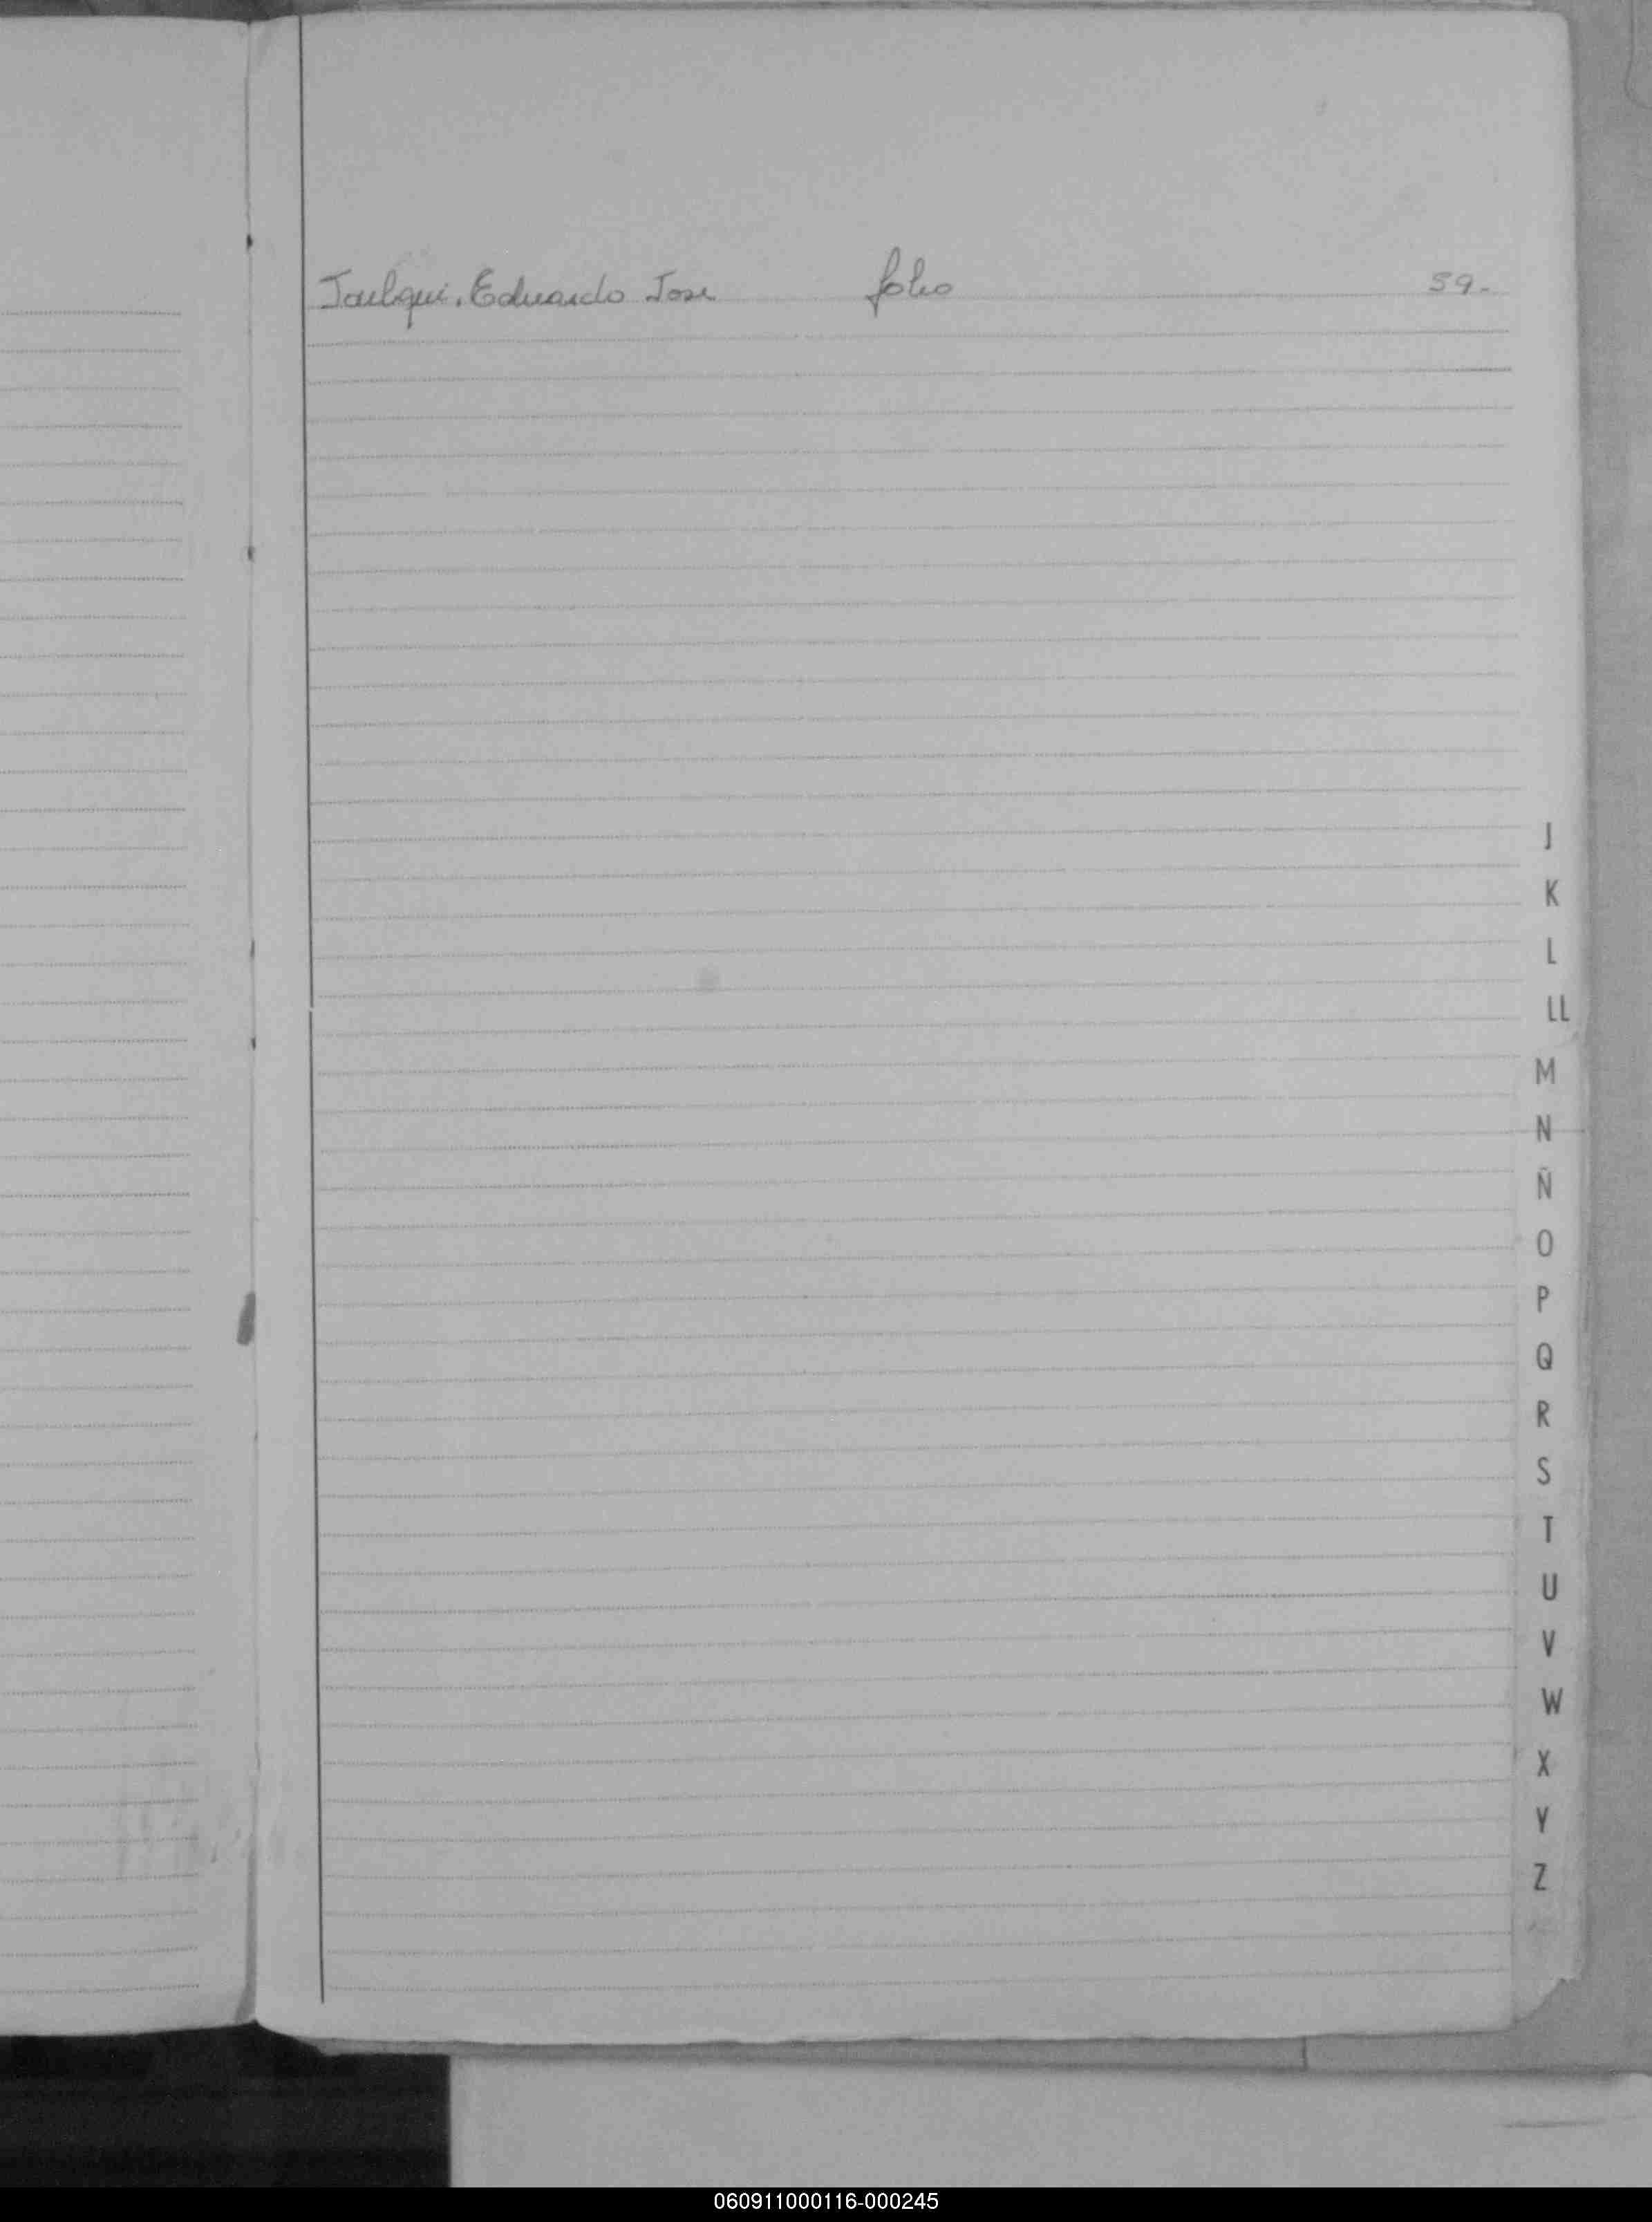 Eduardo Jose folio 59.-
J
K
L
LL
M
N
Ñ
O
P
Q
R
S
T
U
V
W
X
Y
Z
060911000116-000245